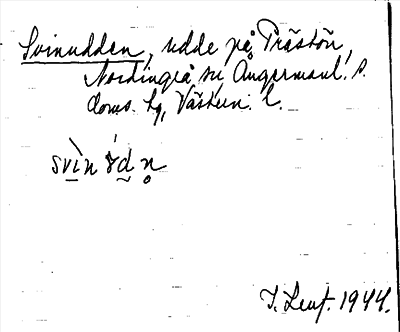 Svinudden, udde på Prästön,
Nordingrå sn, Ångermanl. s.
doms. hg, Västern. l.
svìn ɤ́dn̥
I. Leuf. 1944.